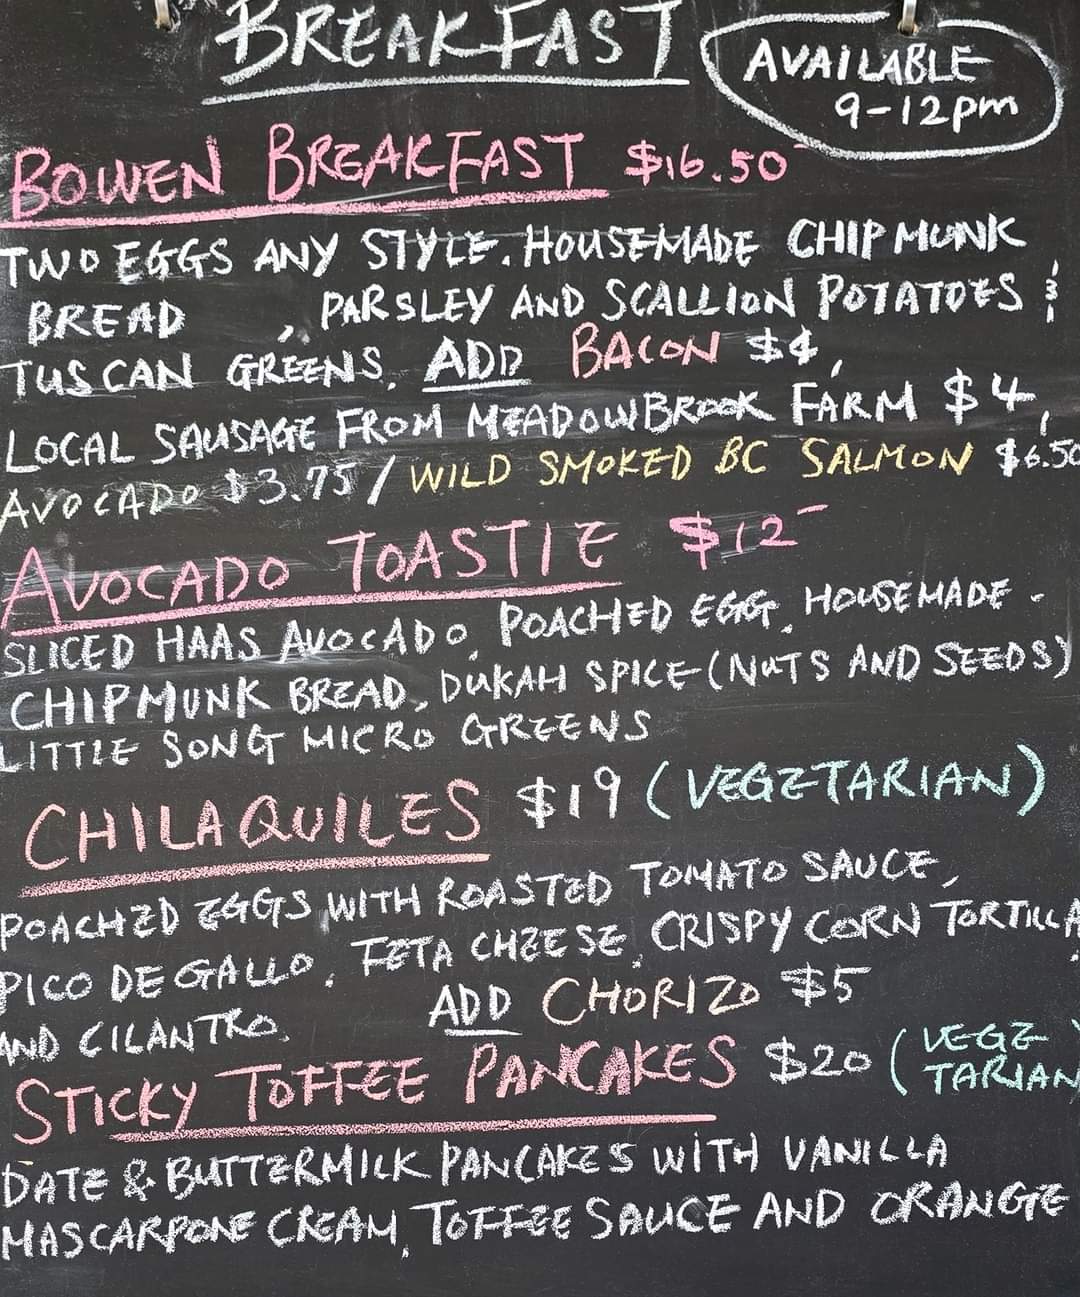 BREAKFAST
AVAILABLE
9-12pm
BOWEN BREAKFAST $16.50
TWO EGGS ANY STYLE. HOUSEMADE CHIPMUNK
BREAD , PARSLEY AND SCALLION POTATOES &
TUSCAN GREENS. ADD BACON $4,
LOCAL SAUSAGE FROM MEADOWBROOK FARM $4,
AVOCADO $3.75 / WILD SMOKED BC SALMON $6.50
AVOCADO TOASTIE $12-
SLICED HAAS AVOCADO, POACHED EGG, HOUSEMADE -
CHIPMUNK BREAD, DUKAH SPICE (NUTS AND SEEDS)
LITTLE SONG MICRO GREENS
CHILAQUILES $19 (VEGETARIAN)
POACHED EGGS WITH ROASTED TOMATO SAUCE,
PICO DE GALLO, FETA CHEESE, CRISPY CORN TORTILLA
AND CILANTRO. ADD CHORIZO $5
STICKY TOFFEE PANCAKES $20 (VEGE
TARIAN
DATE & BUTTERMILK PANCAKES WITH VANILLA
MASCARPONE CREAM, TOFFEE SAUCE AND ORANGE